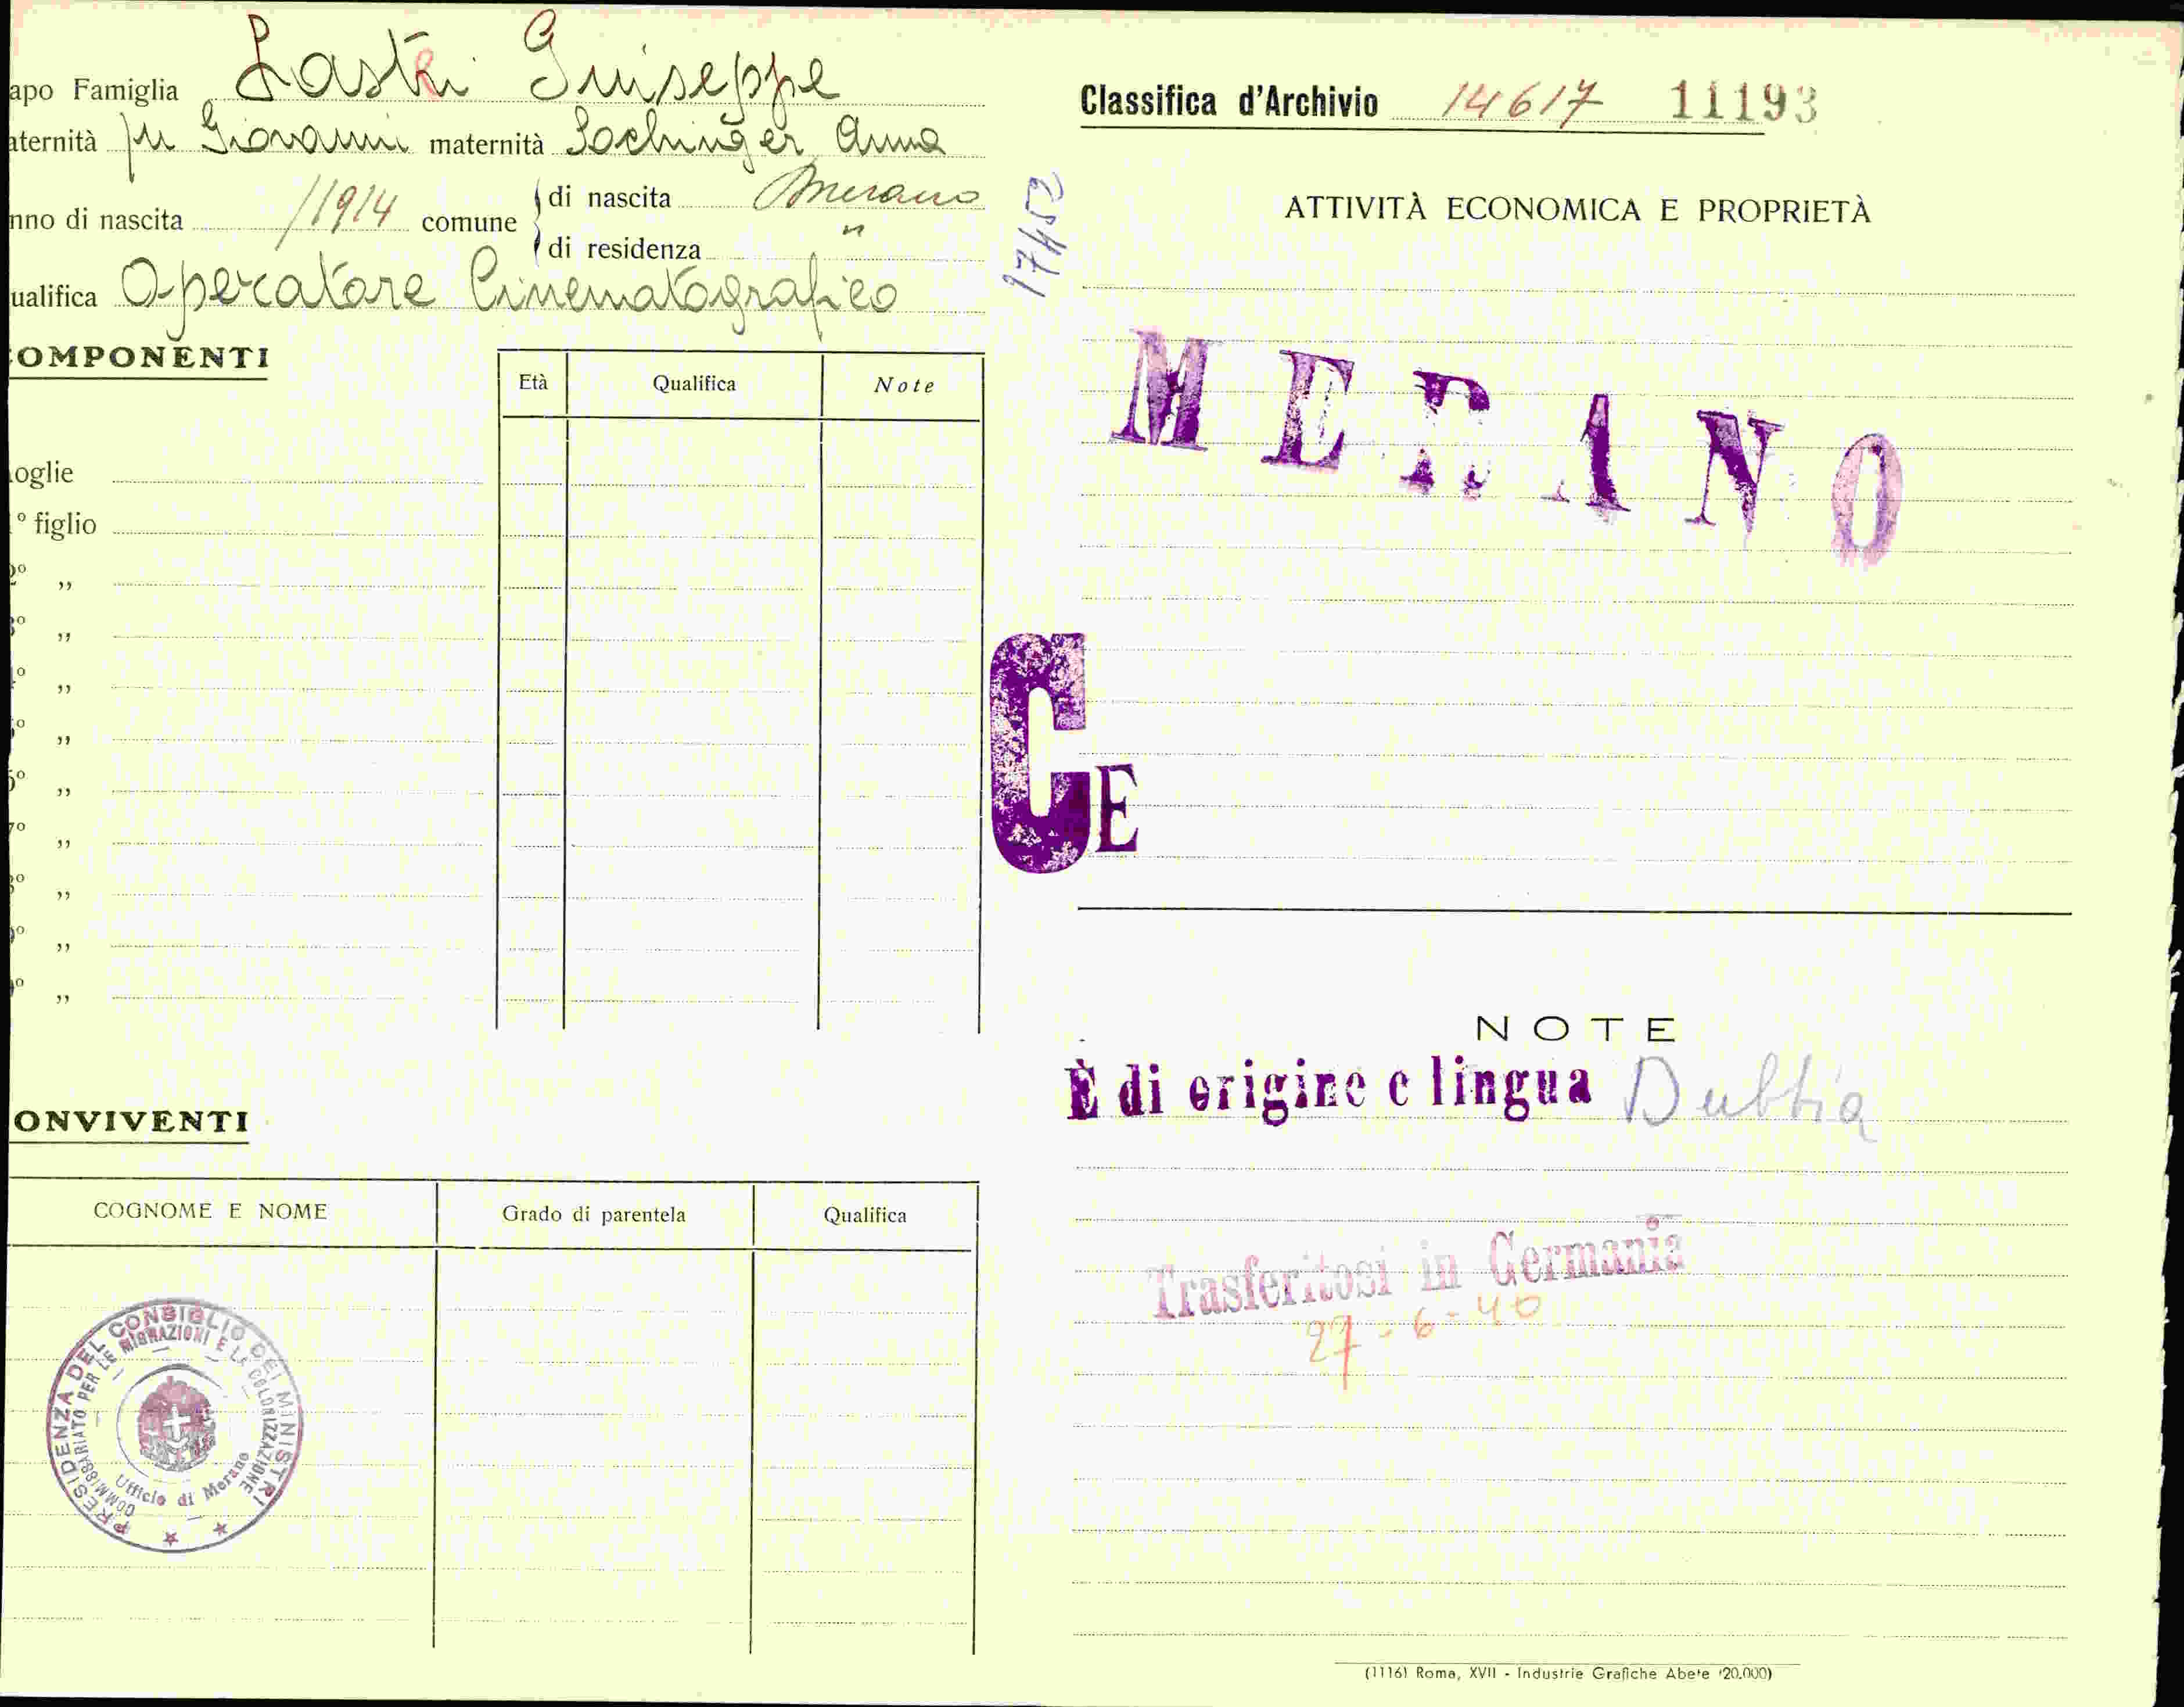 apo Famiglia Lastri Giuseppe
aternità fu Giovanni maternità Sochinger Anna
nno di nascita /1914 comune di nascita Merano
di residenza "
ualifica Operatore Cinematografico
COMPONENTI
Età Qualifica Note
oglie
1° figlio
2° "
3° "
4° "
5° "
6° "
7° "
8° "
9° "
10° "
ONVIVENTI
COGNOME E NOME Grado di parentela Qualifica
PRESIDENZA DEL CONSIGLIO DEI MINISTRI
COMMISSARIATO PER LE MIGRAZIONI E LA COLONIZZAZIONE
Ufficio di Merano
Classifica d'Archivio 14617 11193
ATTIVITÀ ECONOMICA E PROPRIETÀ
MERANO
CE
NOTE
È di origine e lingua Dubbia
Trasferitosi in Germania
27-6-40
(1116) Roma, XVII - Industrie Grafiche Abete (20.000)